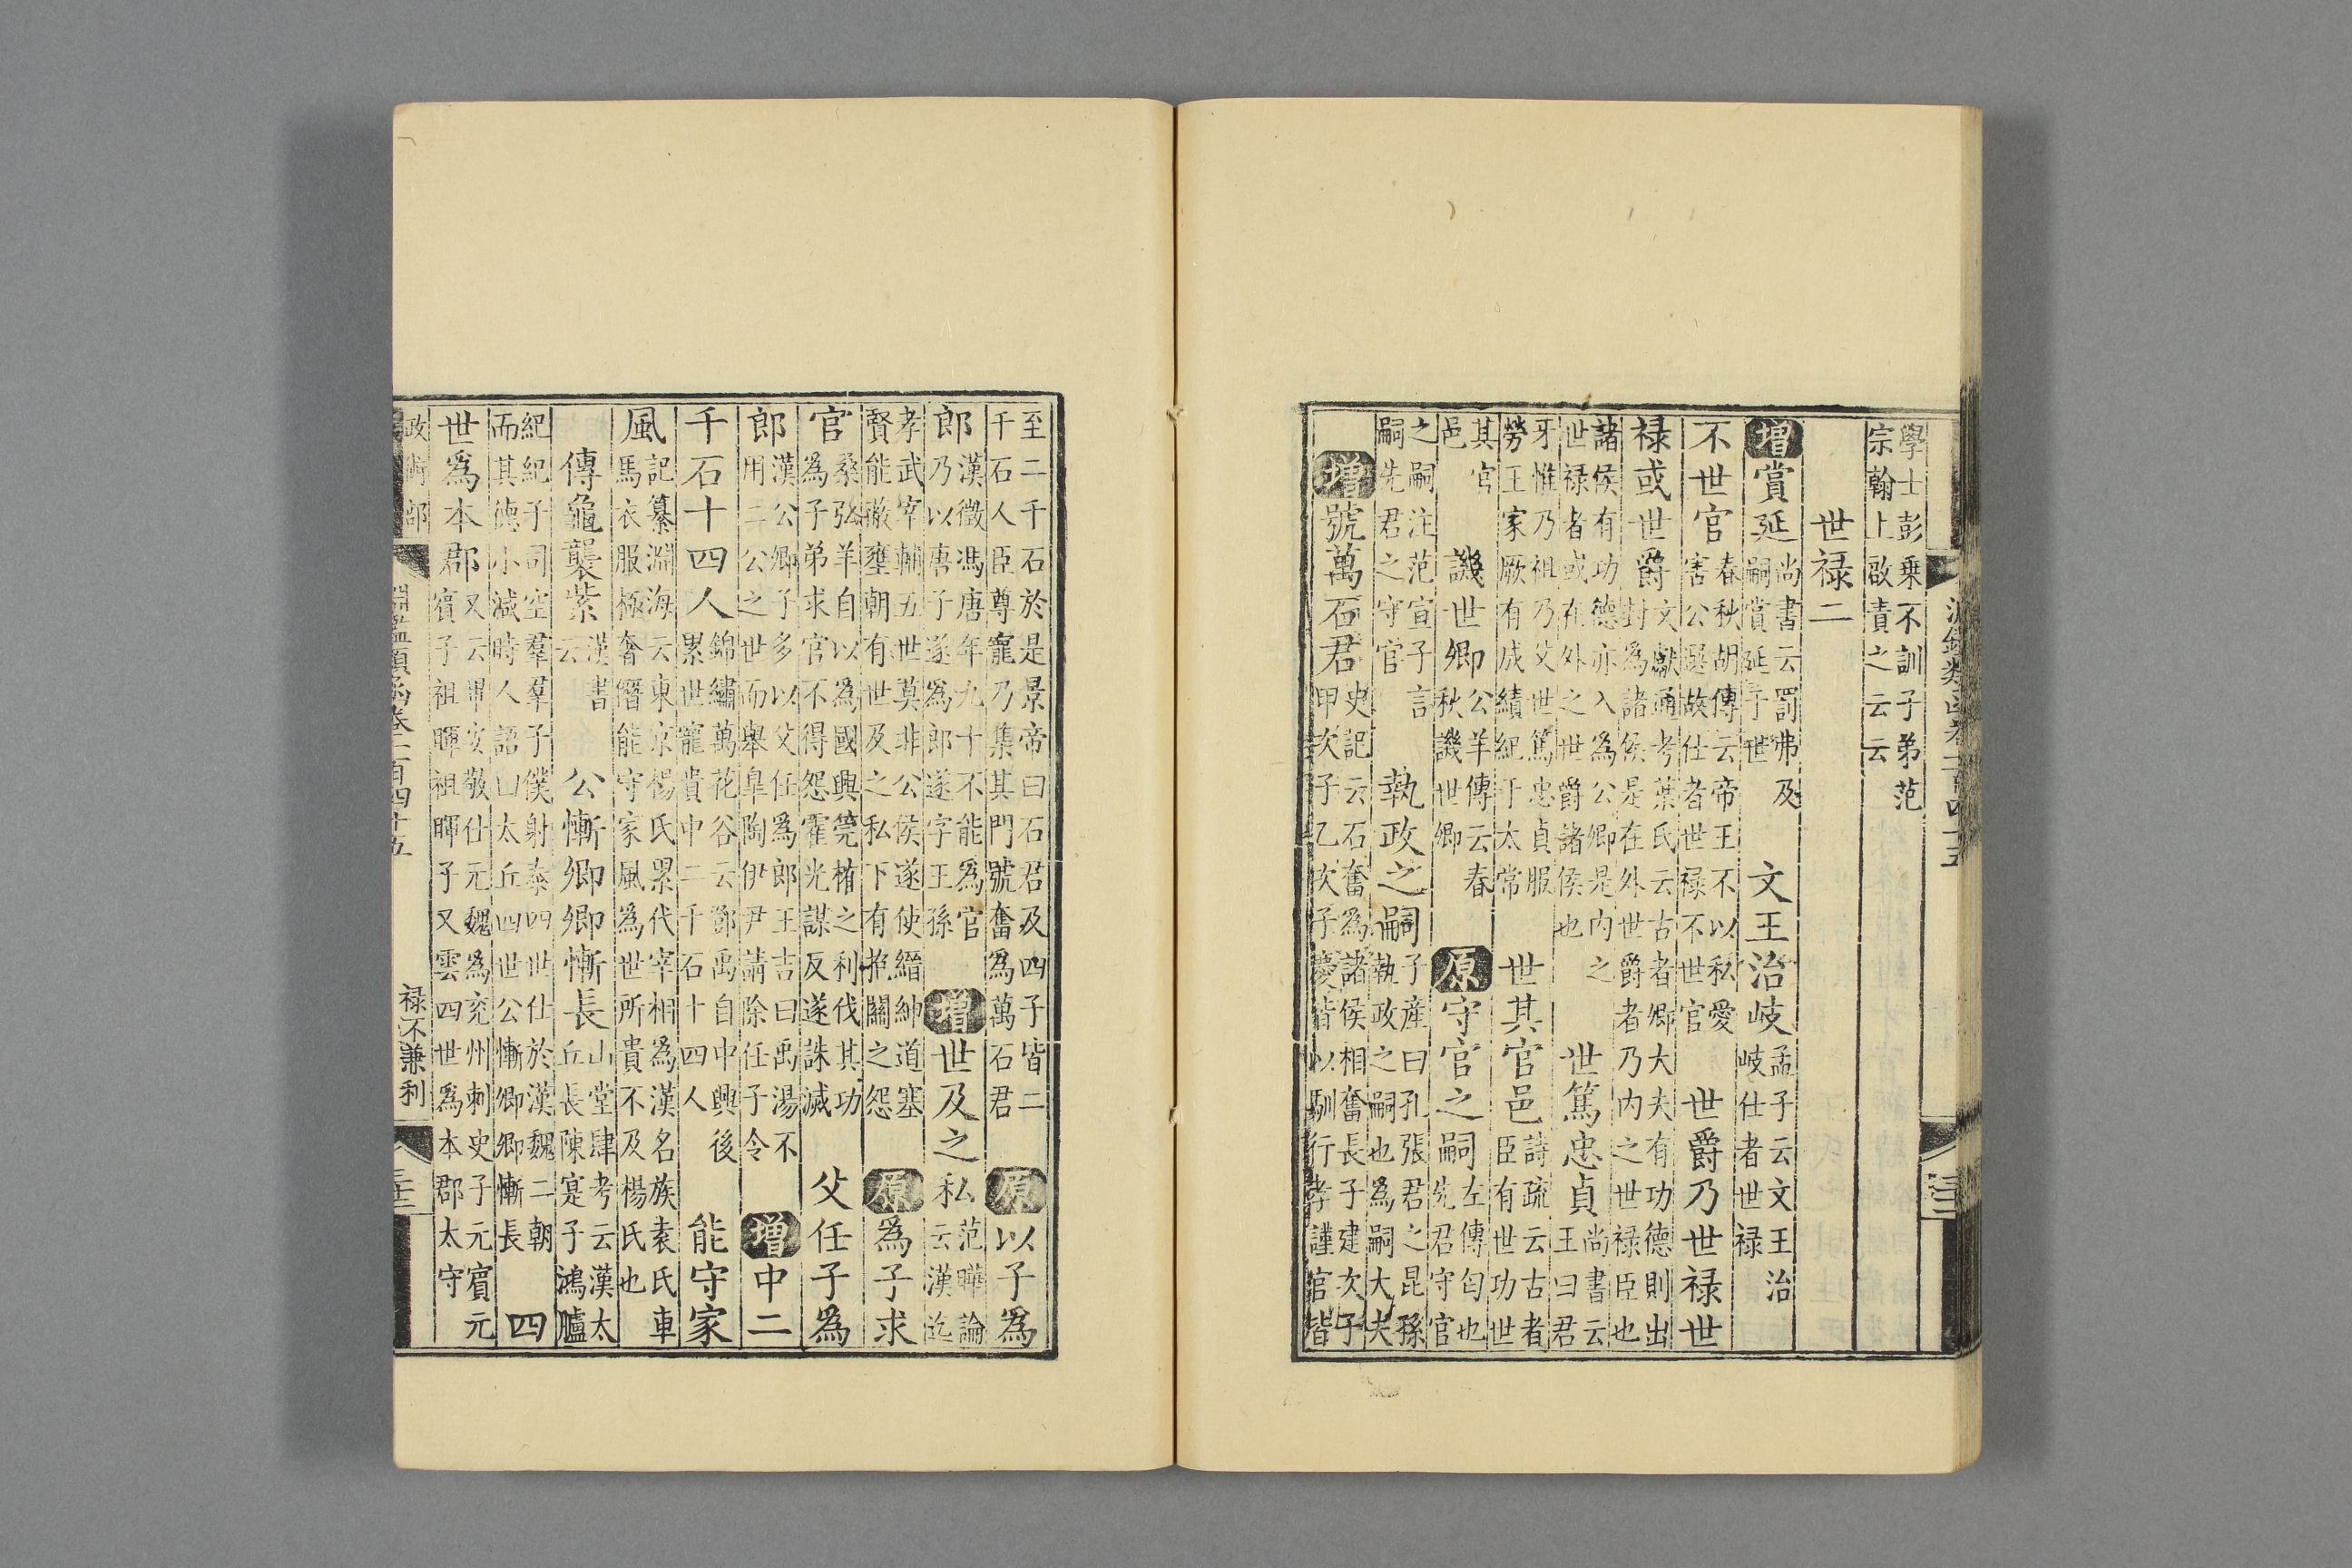 學士彭乗不訓子弟范
宗翰上啟責之云云
世禄二
增賞延尚書云罰弗及嗣賞延于世 文王治岐孟子云文王治岐仕者世禄
不世官春秋胡傳云帝王不以私愛害公選故仕者世禄不世官 世爵乃世禄世
禄或世爵文獻通考葉氏云古者卿大夫有功德則出封為諸侯是在外世爵者乃内之世禄臣也
諸侯有功德亦入為公卿是内之世禄者或在外之世爵諸侯也 世篤忠貞尚書云王曰君
牙惟乃祖乃父世篤忠貞服勞王家厥有成績紀于太常 世其官邑詩疏云古者臣有世功世
其官邑 譏世卿公羊傳云春秋譏世卿 原守官之嗣左傳匄也先君守官
之嗣注范宣子言嗣先君之守官 執政之嗣子產曰孔張君之昆孫執政之嗣也為嗣大夫
增號萬石君史記云石奮為諸侯相奮長子建次子甲次子乙次子慶皆以馴行孝謹官皆
至二千石於是景帝曰石君及四子皆二千石人臣尊寵乃集其門號奮為萬石君 原以子為
郎漢徵馮唐年九十不能為官乃以唐子遂為郎遂字王孫 增世及之私范曄論云漢迄
孝武宰輔五世莫非公侯遂使縉紳道塞賢能蔽壅朝有世及之私下有抱關之怨 原為子求
官桑弘羊自以為國興筦榷之利伐其功為子弟求官不得怨霍光謀反遂誅滅 父任子為
郎漢公卿子多以父任為郎王吉曰禹湯不用二公之世而舉皐陶伊尹請除任子令 增中二
千石十四人錦繡萬花谷云鄧禹自中興後累世寵貴中二千石十四人 能守家
風記纂淵海云東京楊氏累代宰相為漢名族袁氏車馬衣服極奢僭能守家風為世所貴不及楊氏也
傳龜襲紫漢書云 公慚卿卿慚長山堂肆考云漢太丘長陳寔子鴻臚
紀紀子司空羣羣子僕射泰四世仕於漢魏二朝而其德小減時人語曰太丘四世公慚卿卿慚長 四
世為本郡又云畢安敬仕元魏為兖州刺史子元賓元賓子祖暉祖暉子又雲四世為本郡太守
政術部 淵鑑類函卷一百四十五 禄不兼利